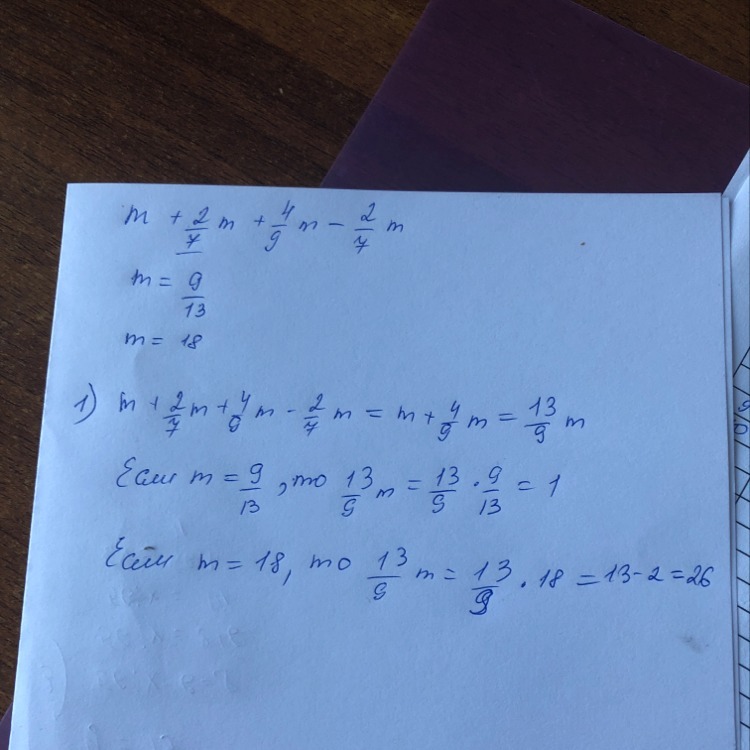 m + 2/7 m + 4/9 m - 2/7 m
m = 9/13
m = 18
1) m + 2/7 m + 4/9 m - 2/7 m = m + 4/9 m = 13/9 m
Если m = 9/13, то 13/9 m = 13/9 · 9/13 = 1
Если m = 18, то 13/9 m = 13/9 · 18 = 13-2 = 26